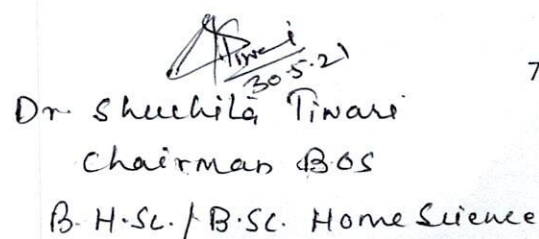 Tiwari
30.5.21
7
Dr Shuchita Tiwari
Chairman BOS
B.H.Sc. / B.Sc. Home Science